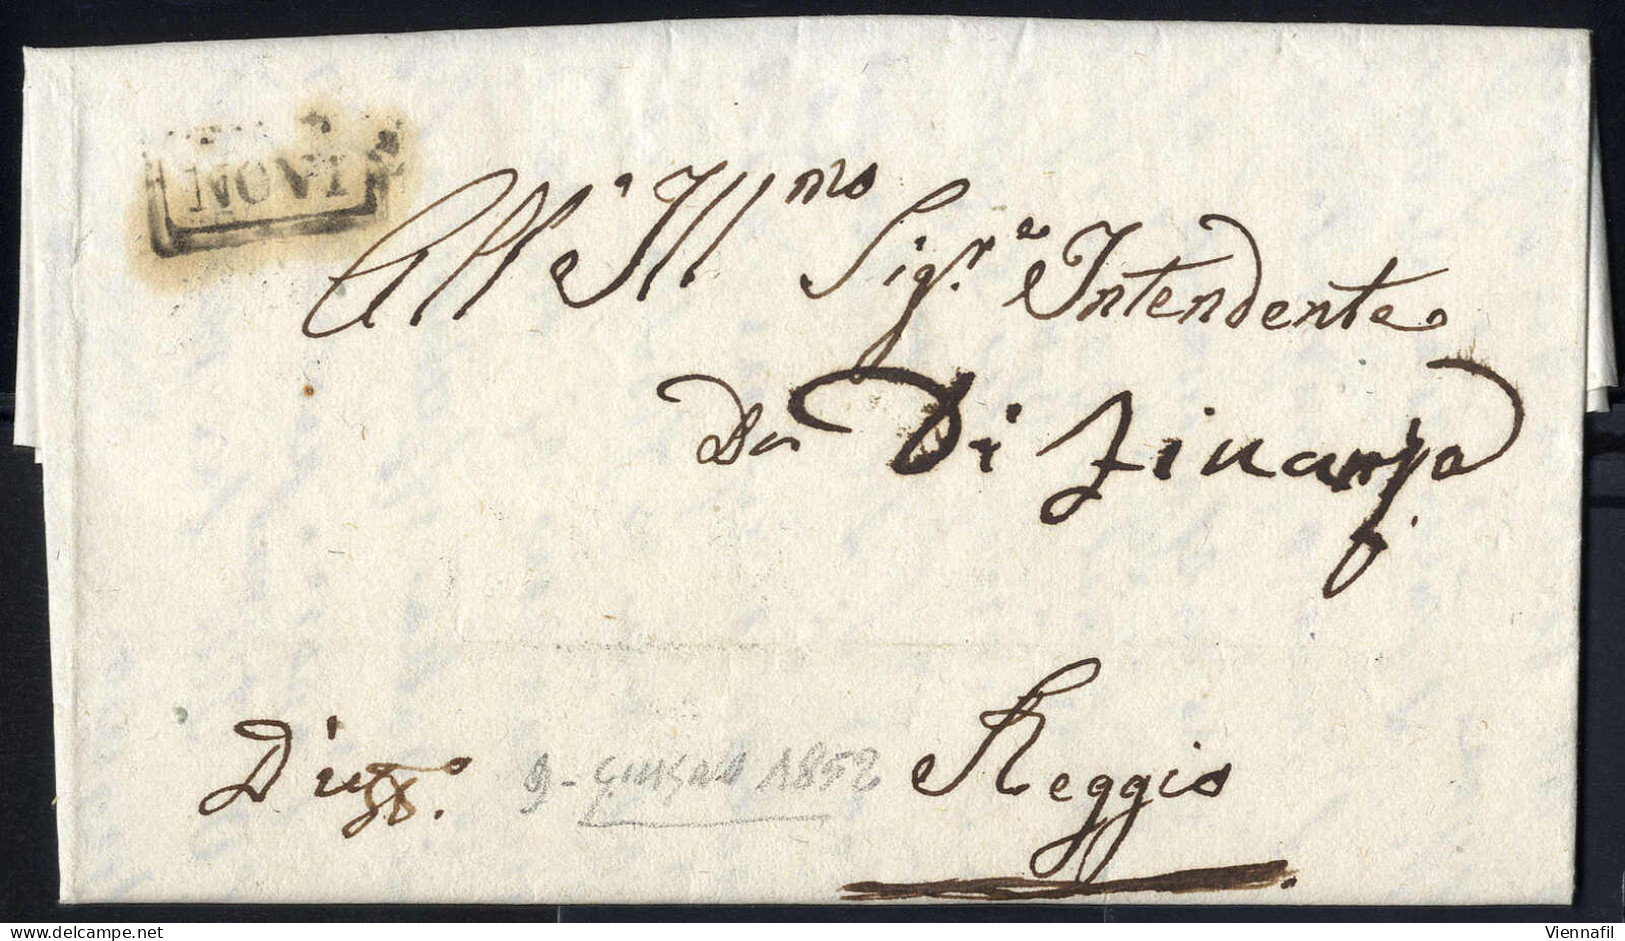 NOVI
All' Ill.mo Sigr.e Intendente
Di Finanza
9 - giugno 1852
Reggio
Viennafil